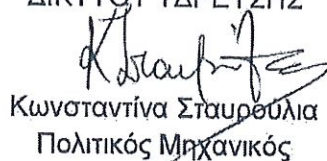 ΔΙΚΤΥΟΥ ΥΔΡΕΥΣΗΣ
Κωνσταντίνα Σταυρούλια
Πολιτικός Μηχανικός